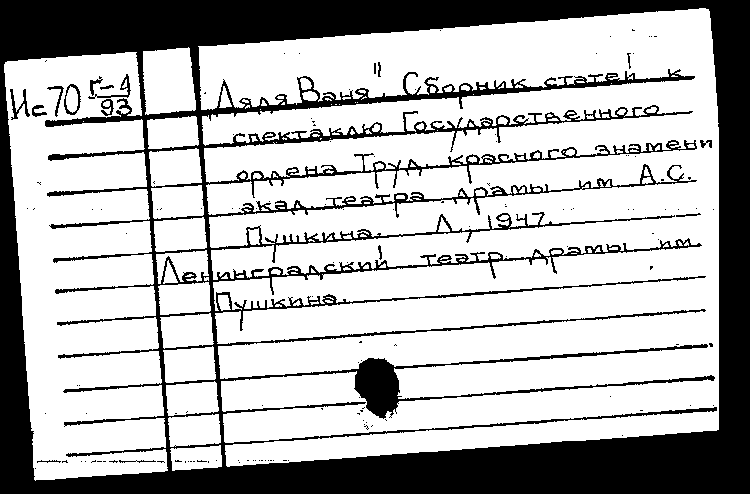 Ис70 Г-1/93 „Дядя Ваня". Сборник статей к
спектаклю Государственного
ордена Труд. красного знамени
акад. театра драмы им А.С.
Пушкина. Л., 1947.
Ленинградский театр драмы им.
Пушкина.